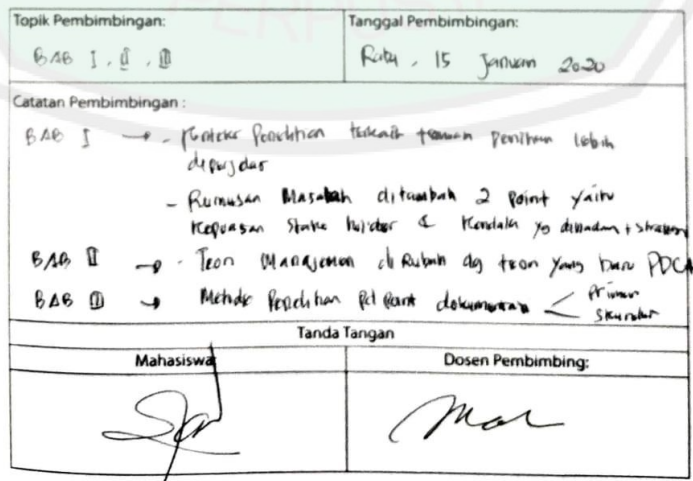 Topik Pembimbingan:
BAB I, II, III
Tanggal Pembimbingan:
Rabu, 15 Januari 2020
Catatan Pembimbingan :
BAB I → - Konteks Penelitian terkait temuan Penelitian lebih
diperjelas
- Rumusan Masalah ditambah 2 Point yaitu
Kepuasan Stake holder & Kendala yg dihadapi + strategi
BAB II → - Teori Manajemen di Rubah dg teori yang baru PDCA
BAB III → Metode Penelitian Pd Point dokumentasi < Primer
Skunder
Tanda Tangan
Mahasiswa
Dosen Pembimbing: